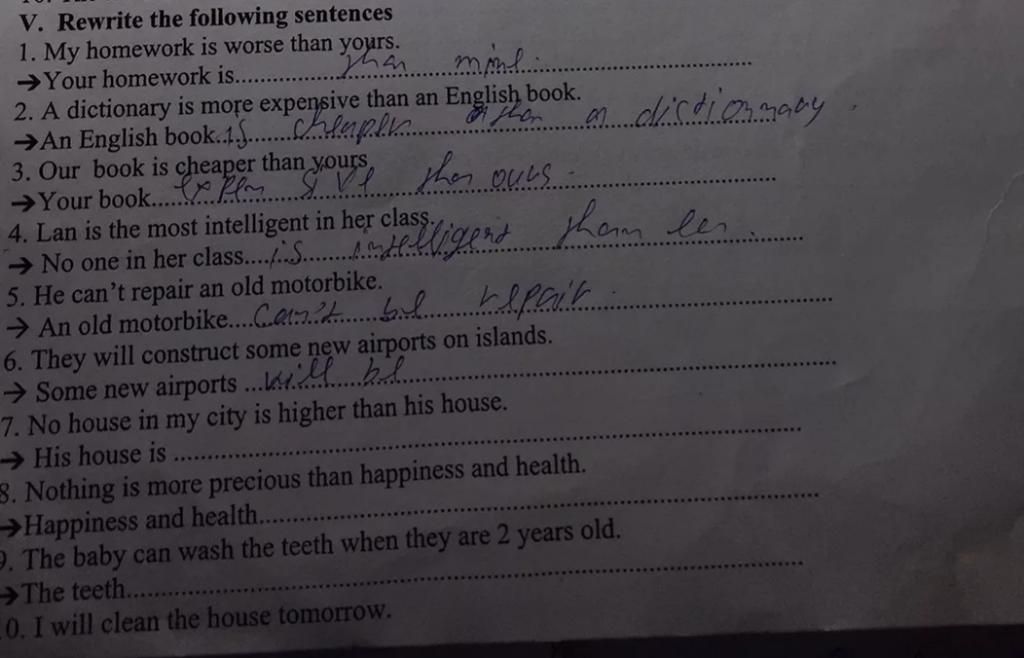 V. Rewrite the following sentences
1. My homework is worse than yours.
→Your homework is............than......mine..............................
2. A dictionary is more expensive than an English book.
→An English book..is.....cheaper.........than......a dictionary.
3. Our book is cheaper than yours
→Your book.....................than ours..............................
4. Lan is the most intelligent in her class.
→ No one in her class....is.......intelligent than lan.
5. He can't repair an old motorbike.
→ An old motorbike....can't.....be.......repair..............................
6. They will construct some new airports on islands.
→ Some new airports ...will....be............................................................
7. No house in my city is higher than his house.
→ His house is ..........................................................................................
8. Nothing is more precious than happiness and health.
→Happiness and health..............................................................................
9. The baby can wash the teeth when they are 2 years old.
→The teeth..................................................................................................
0. I will clean the house tomorrow.